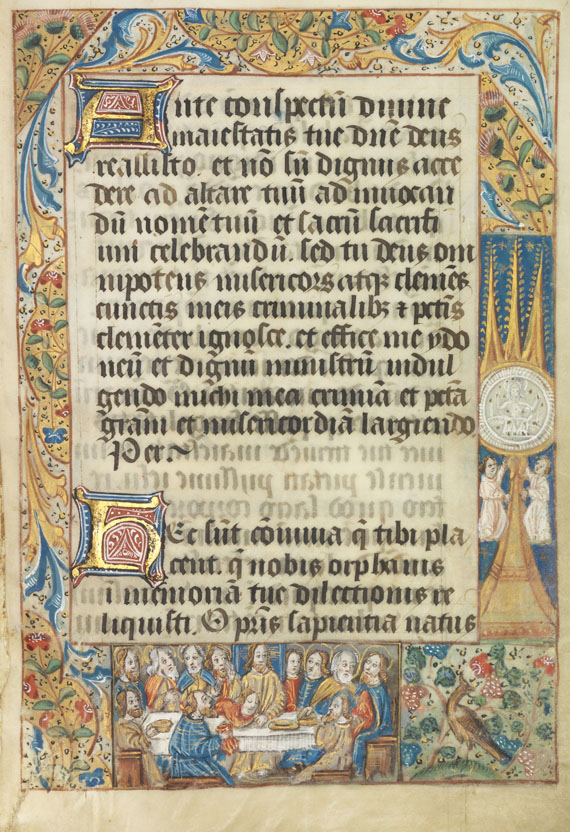 Ante conspectū diuine
maiestatis tue dn̄e deus
reassisto. et nō sū dignus acce
dere ad altare tuū ad inuocan
dū nomē tuū et sacrū sacrifi
ciū celebrandū. sed tu deus om
nipotens misericors atqꝫ clemēs
cunctis meis criminalibꝫ ⁊ pctīs
clemēter ignosce. et effice me ydo
neū et dignū ministrū indul
gendo michi mea crimīa et pctā
gratiā et misericordiā largiendo
Per
Hec sūt cōuiuia q̄ tibi pla
cent. q̄ nobis orphanis
i memoriā tue dilectionis re
liquisti. O pr̄is sapientia natus